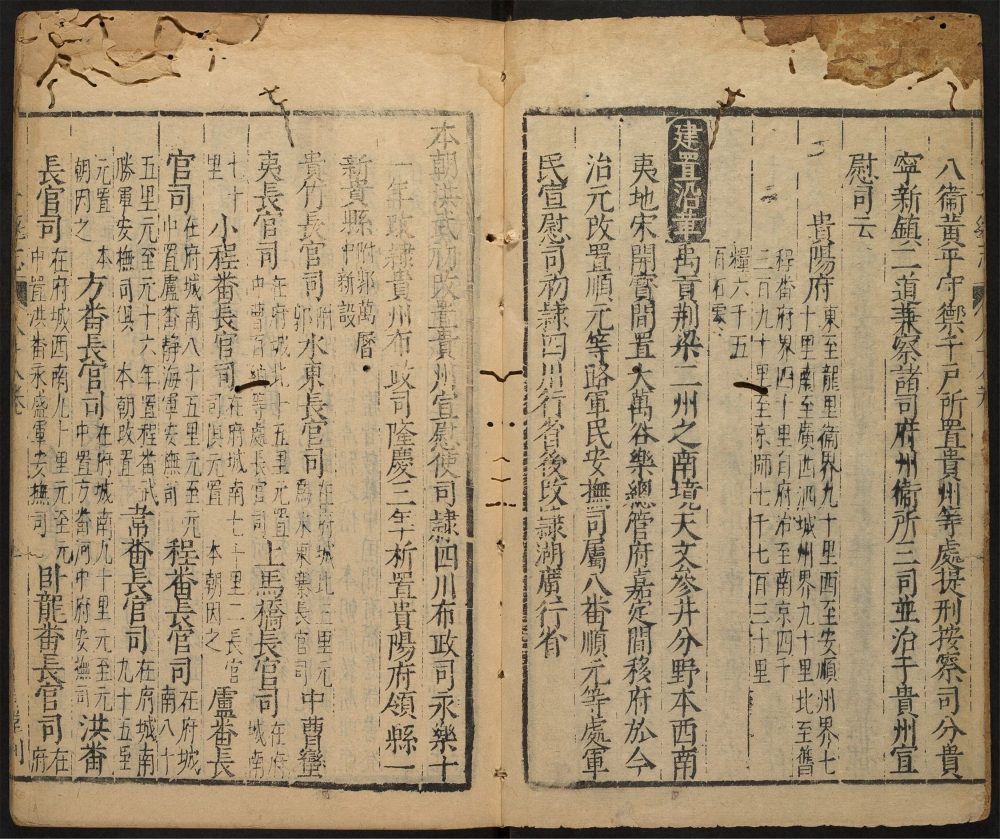 八衞黃平守禦千戶所置貴州等處提刑按察司分貴
寧新鎮二道兼察諸司府州衞所三司並治于貴州宣
慰司云
貴陽府
東至龍里衞界九十里西至安順州界七
十里南至廣西泗城州界九十里北至舊
程番府界四十里自府治至南京四千
三百九十里至京師七千七百三十里
糧六千五
百石零
建置沿革
禹貢荆梁二州之南境天文參井分野本西南
夷地宋開寶間置大萬谷樂總管府嘉定間移府於今
治元改置順元等路軍民安撫司屬八番順元等處軍
民宣慰司初隷四川行省後改隷湖廣行省
本朝洪武初改置貴州宣慰使司隷四川布政司永樂十
一年改隷貴州布政司隆慶三年析置貴陽府領縣一
新貴縣
附郭萬曆
中新設
貴竹長官司
附
郭
水東長官司
在府城北三里元
爲水東寨長官司
中曹蠻
夷長官司
在府城北十五里元置
中曹百納等處長官司
上馬橋長官司
在府
城南
七十
里
小程番長官司
在府城南七十里二長官
司俱元置 本朝因之
盧番長
官司
在府城南八十五里元至元
中置盧番靜海軍安撫司
程番長官司
在府城
南八十
五里元至元十六年置程番武
勝軍安撫司俱 本朝改置
韋番長官司
在府城南
九十五里
元置 本
朝因之
方番長官司
在府城南九十里元至元
中置方番河中府安撫司
洪番
長官司
在府城西南九十里元至元
中置洪番永盛軍安撫司
卧龍番長官司
在
府